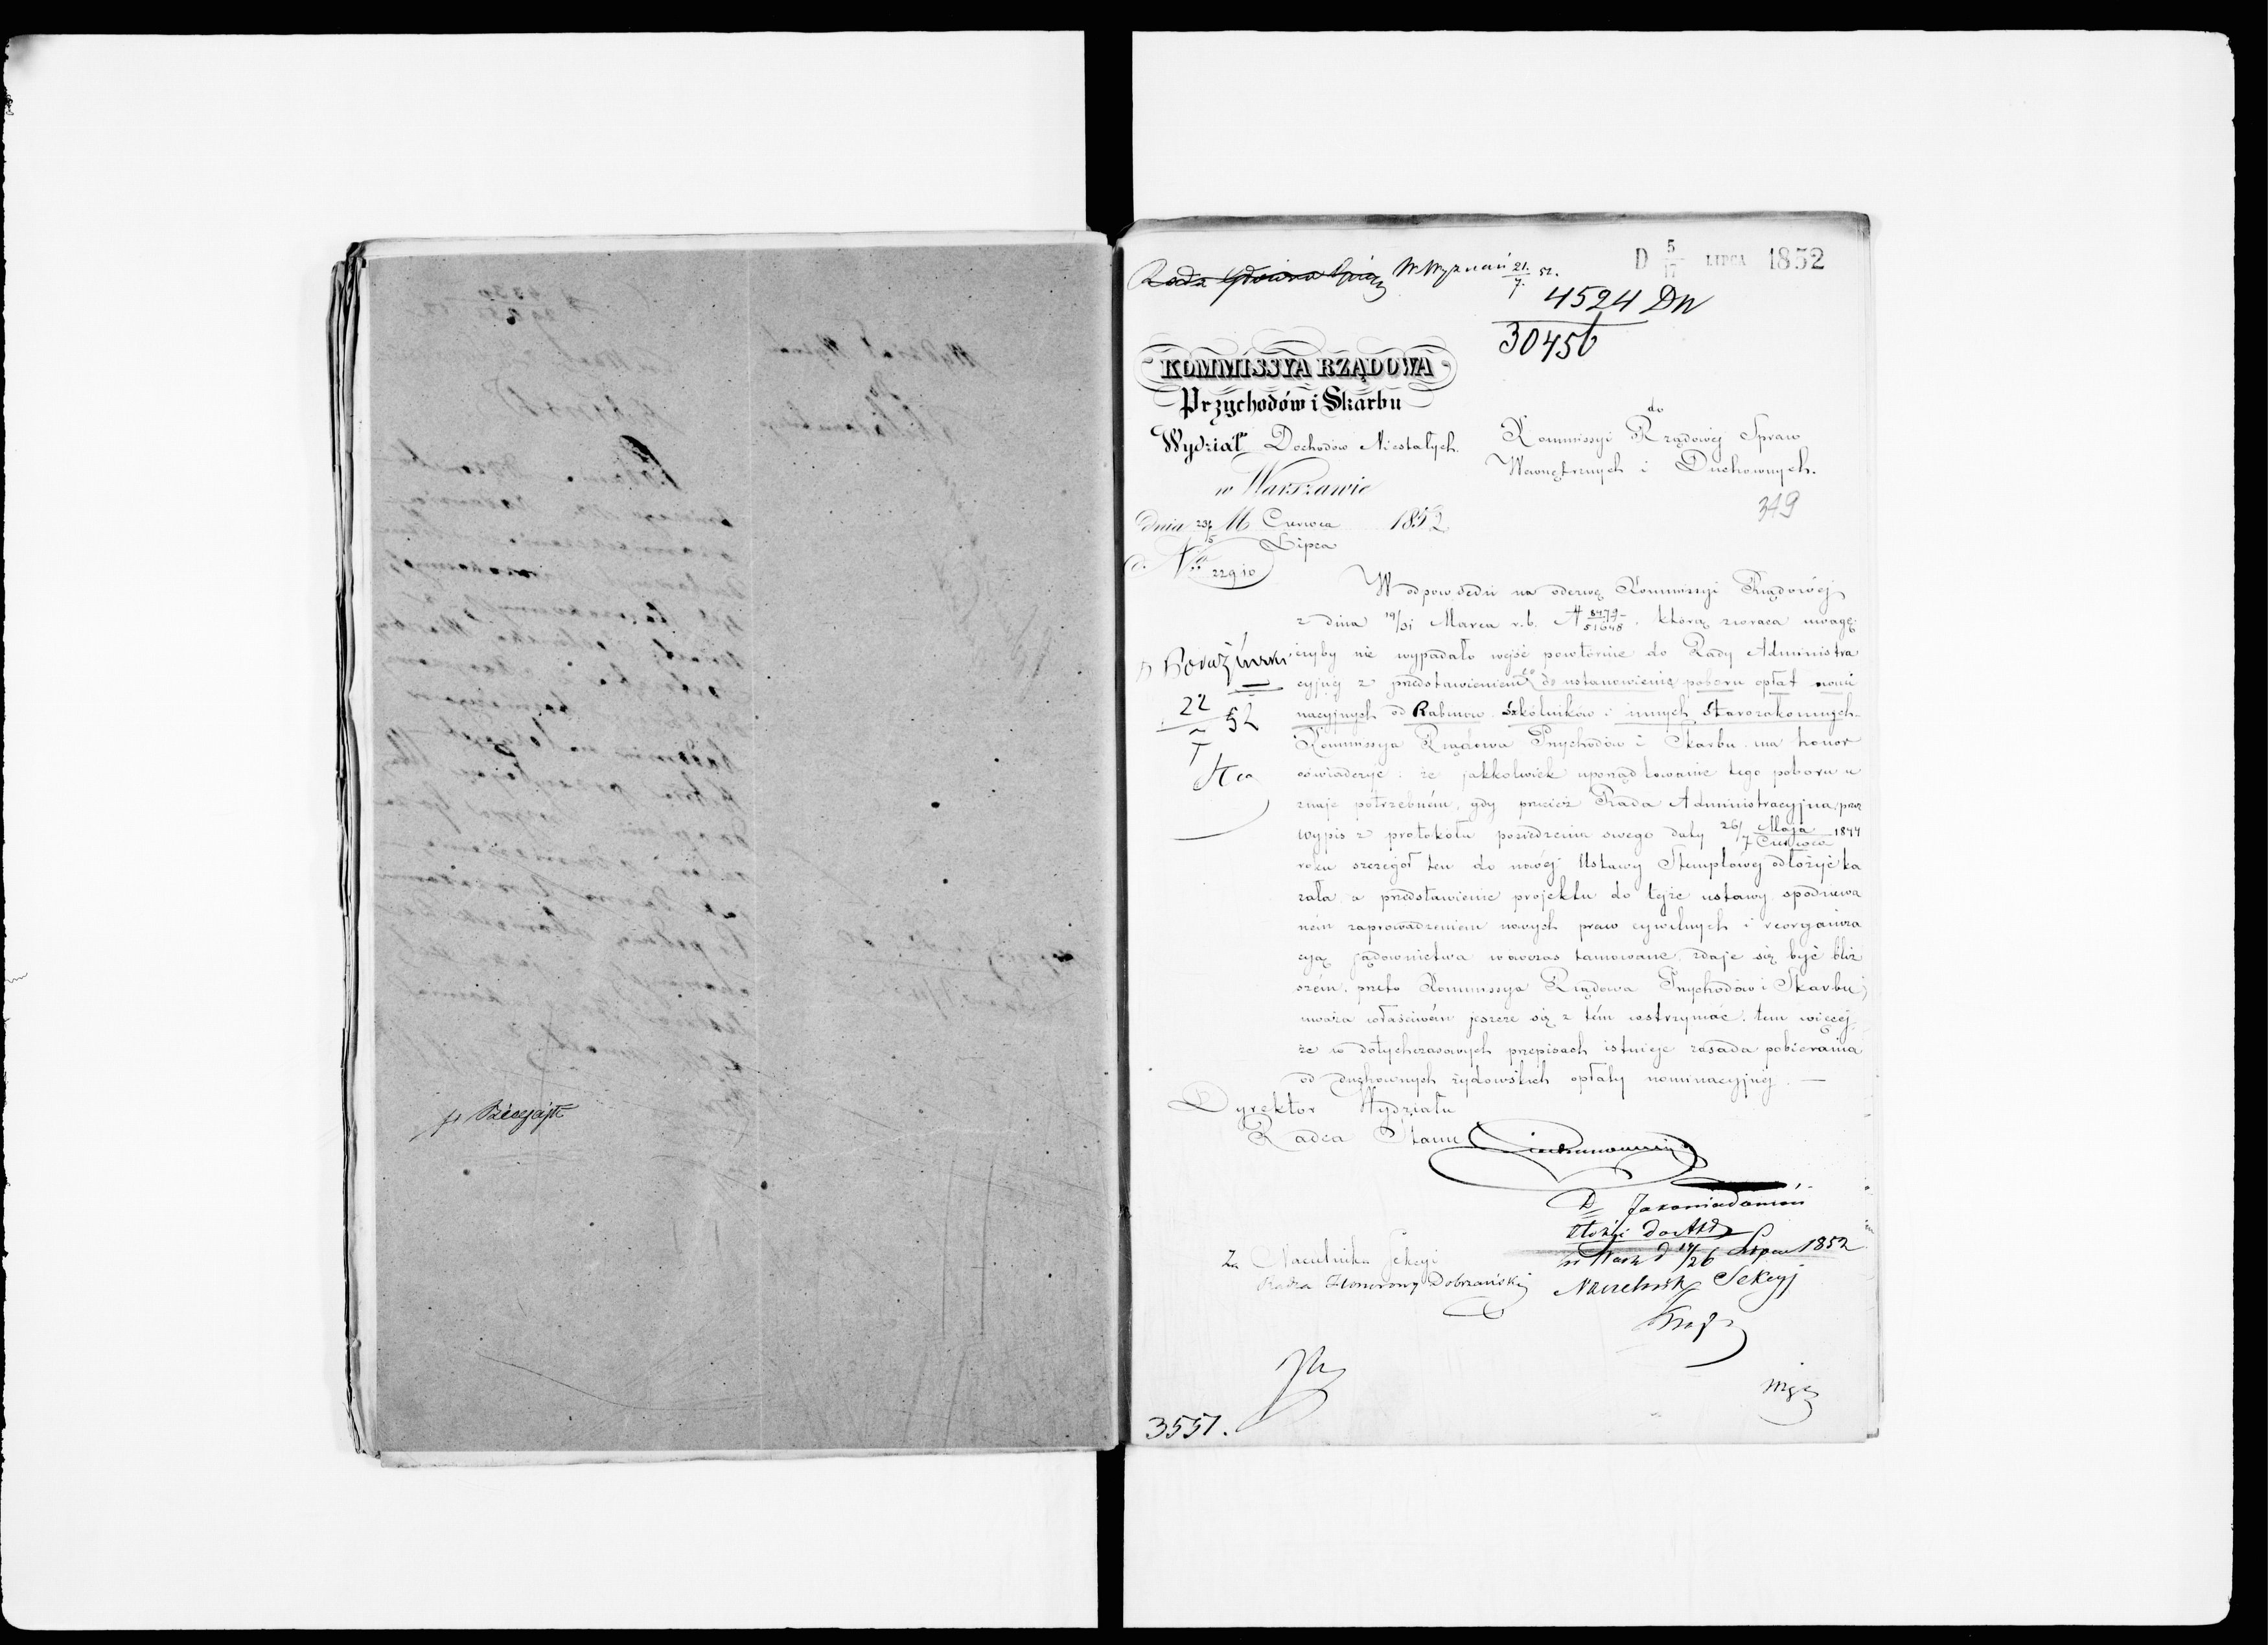 D 5/17 LIPCA 1852
Rada Główna W. Wyznań 21/7 52.
4524 DW
30456
KOMMISSYA RZĄDOWA
Przychodów i Skarbu
Wydział Dochodów Niestałych.
w Warszawie
dnia 23/5 M Czerwca 1852
Lipca
No 22910
do
Kommissyi Rządowéj Spraw
Wewnętrznych i Duchownych.
349
W odpowiedzi na odezwę Kommissyi Rządowéj
z dnia 19/31 Marca r.b. N 8479/51648, którą zwraca uwagę
czyby nie wypadało wejść powtórnie do Rady Administra
cyjnéj z przedstawieniem co do ustanowienia poboru opłat nomi
nacyjnych od Rabinów Szkolników i innych starozakonnych
Kommissya Rządowa Przychodów i Skarbu ma honor
oświadczyć: że jakkolwiek uporządkowanie tego poboru u
znaje potrzebném, gdy przecież Rada Administracyjna, przez
wypis z protokółu posiedzenia swego daty 26/7 Maja/Czerwca 1844
roku szczegół ten do nowéj Ustawy Stemplowéj odłożyć ka
zała, a przedstawienie projektu do tejże ustawy, spodziewa
ném zaprowadzeniem nowych praw cywilnych i reorganiza
cyą sądownictwa wówczas tamowane, zdaje się być bliż
szém, przeto Kommissya Rządowa Przychodów i Skarbu
uważa właściwém jeszcze się z tém wstrzymać, tem więcéj,
że w dotychczasowych przepisach istnieje zasada pobierania
od duchownych żydowskich opłaty nominacyjnéj. —
22/7 52
Dyrektor Wydziału
Radca Stanu
D Za
Złożyć do Akt
w Warsz d 14/26 Lipca 1852
Naczelnik Sekcyj
Za Naczelnika Sekcyi
Radca Honorowy Dobrzański
3551.